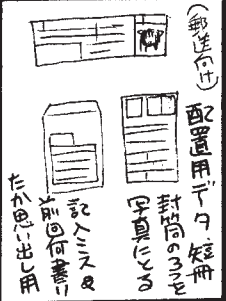 (郵送向け)
配置用データ、短冊
封筒のみうらを
写真にとる
記入ミス&
前回何書い
たか思い出し用